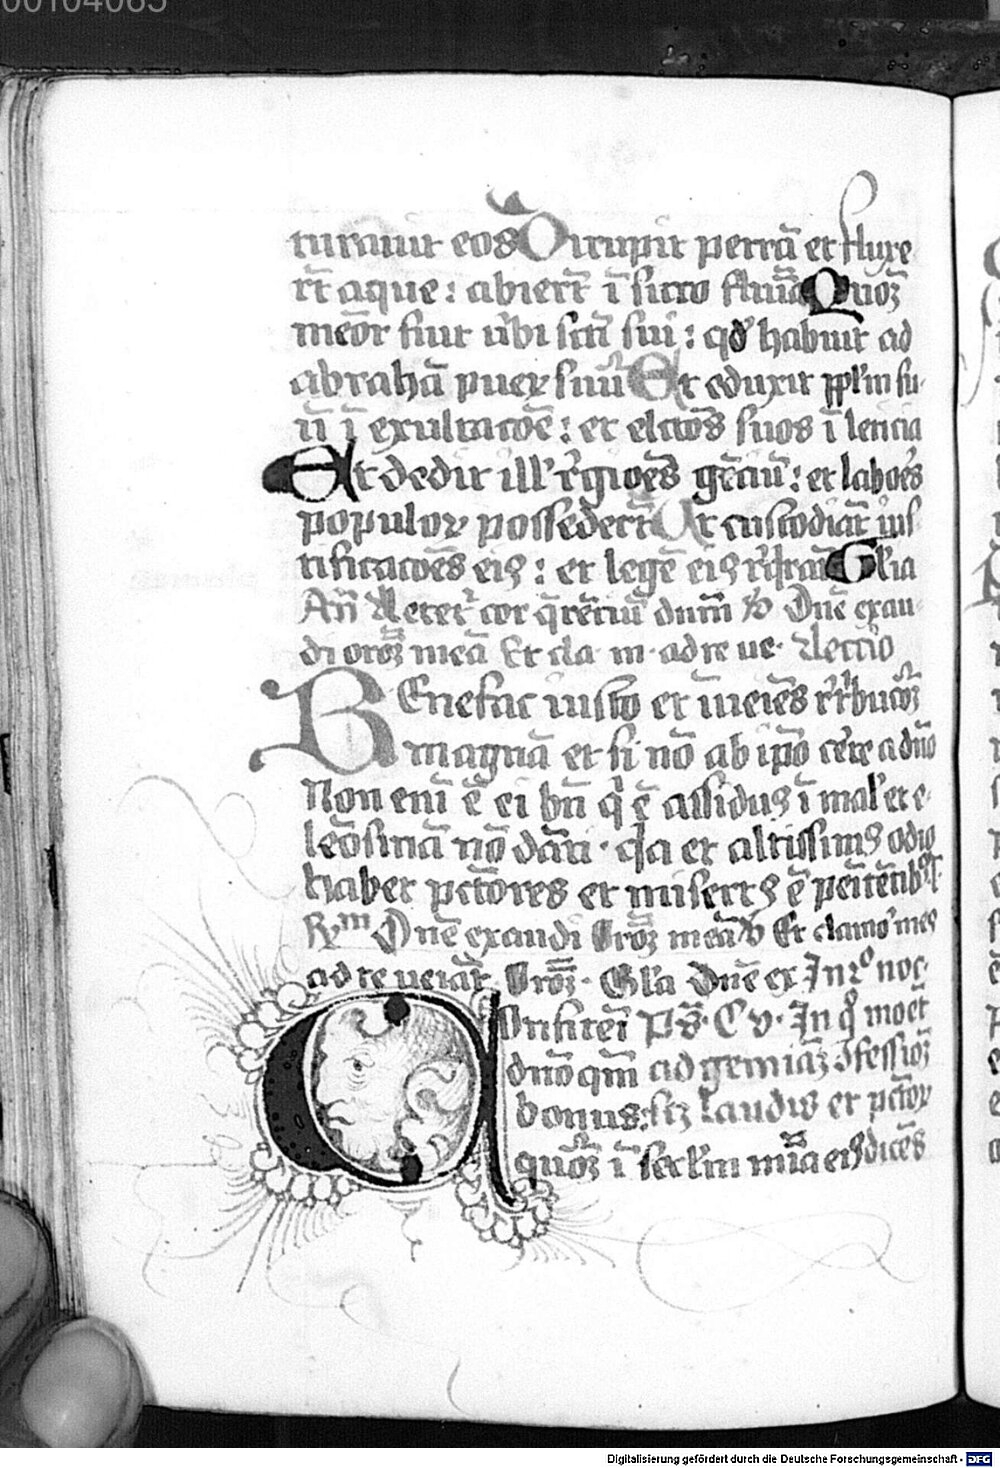 00104085
turauit eos Dirupit petrā et fluxe
rt̄ aque : abiert̄ ī sicco flumīa Quoꝫ
meōr fuit v̄bi sctī sui : qđ habuit ad
abrahā pueꝝ suū Et eduxit ppl'm su
ū ī exultacōe : et elctōs suos ī leticia
Et dedit ill' r̄gioēs gēciū : et laboēs
populoꝝ possedert̄ Ut custodiāt ius
tificacoēs eiꝰ : et legē eiꝰ r̄q̄rāt Gl'ia
An̄ Letet' cor q̄rēciū dum̄ ꝟ Dn̄e exau
di oroꝫ meā Et cla m ad te ue lectio
BEnefac iusto et īueies r̄t'bucoꝫ
magnā et si nō ab ipō cēte a dn̄o
Non enī ē ei bn̄ q̄ ē assiduꝰ ī mal' et e
leōsinā nō dāti · q̄a et altissimꝰ odio
habet pctōres et misertꝰ ē peīt̄etibꝰ
Rm Dn̄e exaudi Oroꝫ meā ꝟ Et clamo' meꝰ
ad te ueīat Oroꝫ · Gl'a Dn̄e ex In 2o noc
Confitēī Ps̄ · C v · In q̄ moet
dn̄o qm̄ ad gemīaꝫ ꝯfessioꝫ
bonus : scꝫ laudis et pctōꝝ
quōꝫ ī secl'm mīa eiꝰ dicēs
Digitalisierung gefördert durch die Deutsche Forschungsgemeinschaft - DFG